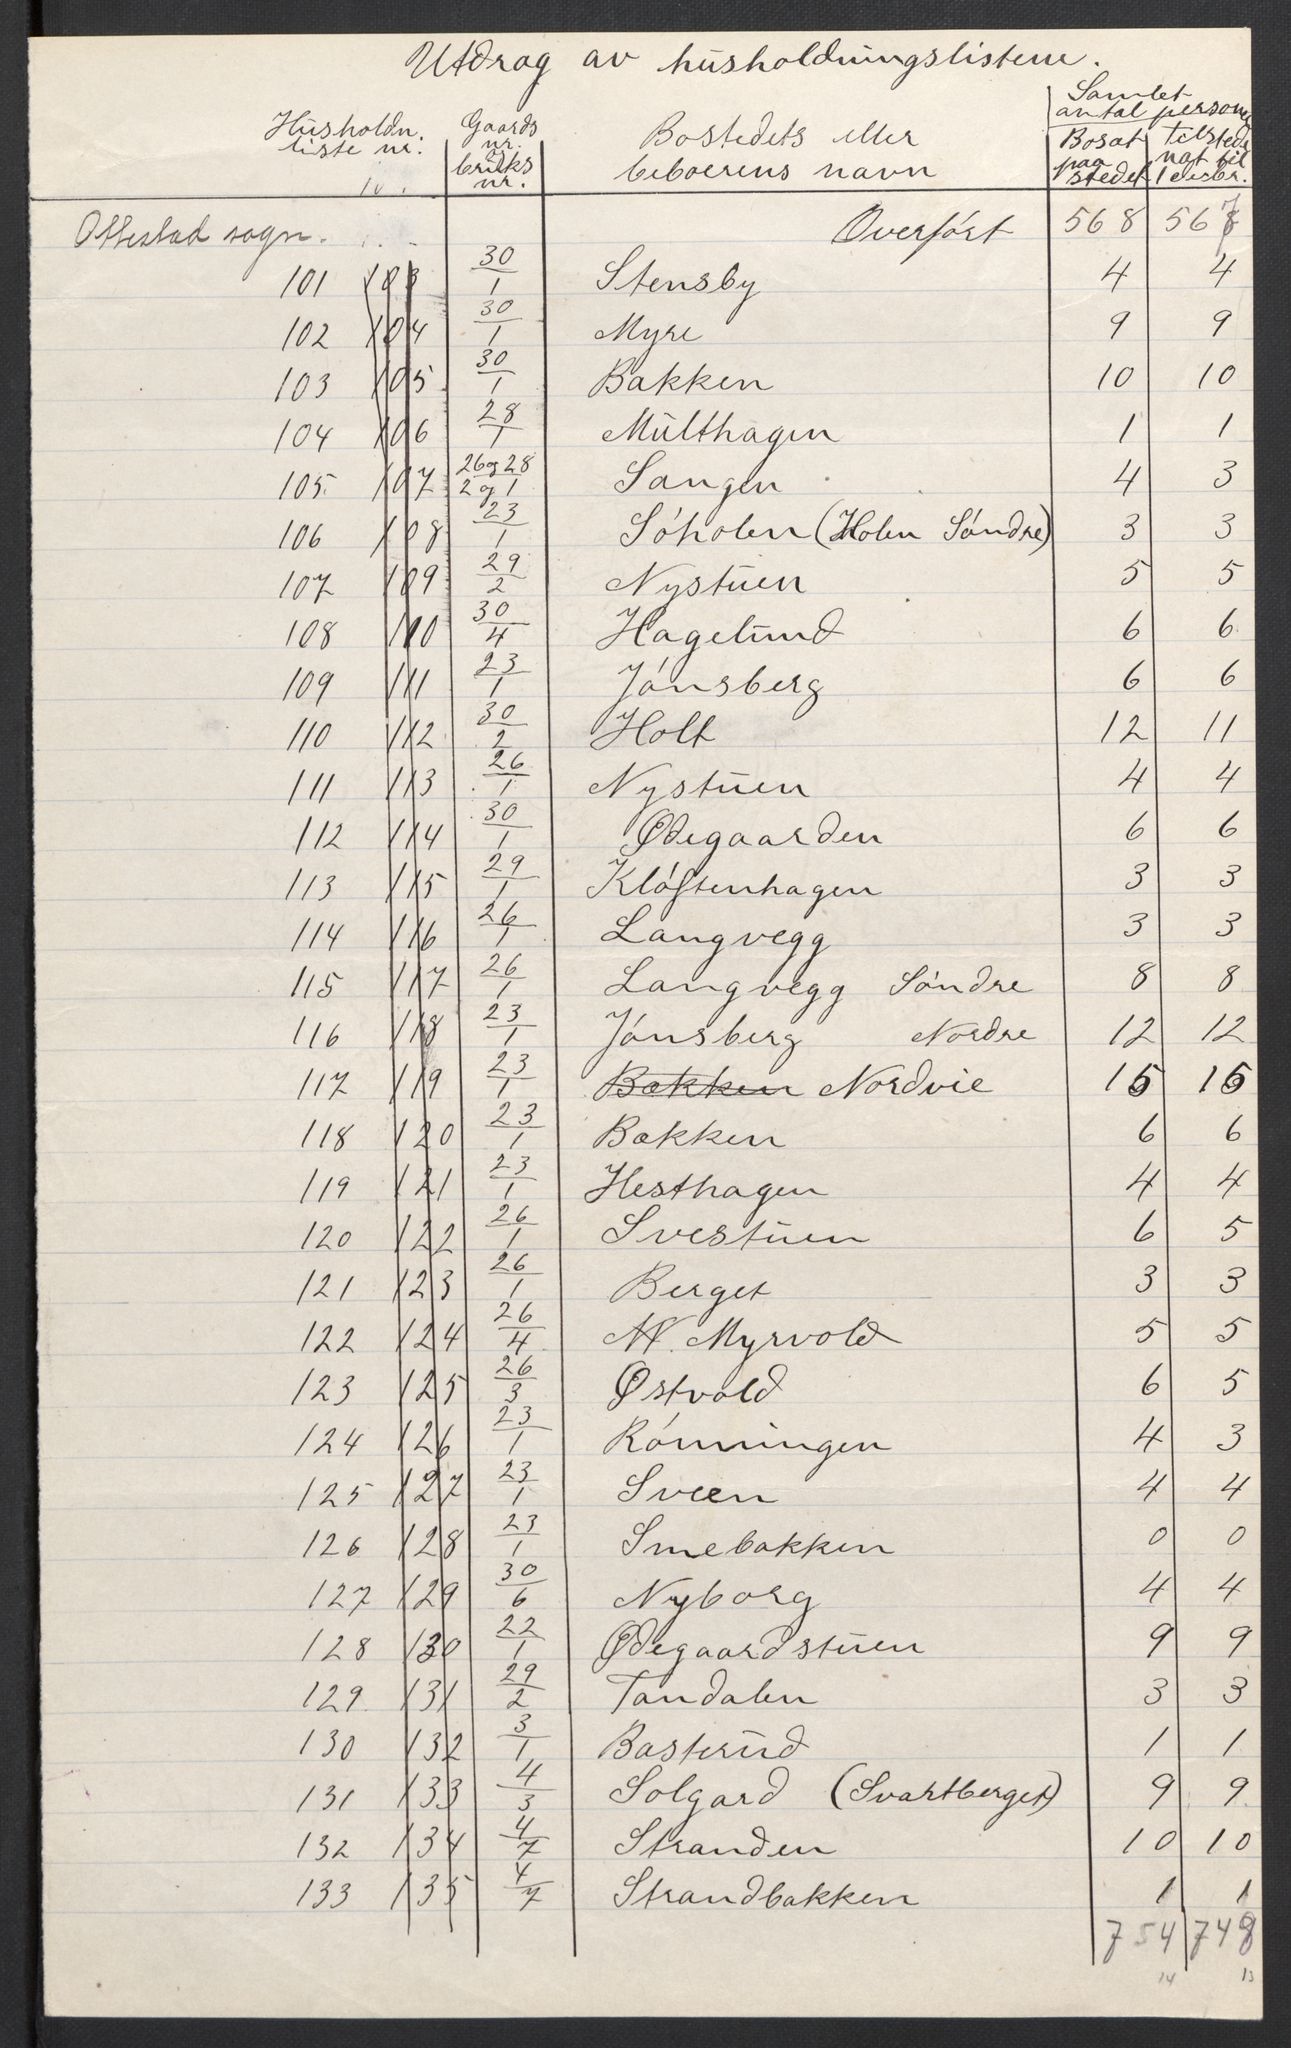 Utdrag av husholdningslistene.
Husholdn. liste nr. | Gaards nr. og bruks nr. | Bostedets eller beboerens navn | Samlet antal personer: Bosat paa stedet | tilstede nat til 1 desbr.
Ottestad sogn. Overført 568 567
101 103 30/1 Stensby 4 4
102 104 30/1 Myre 9 9
103 105 30/1 Bakken 10 10
104 106 28/1 Multhagen 1 1
105. 107 26 og 28 / 2 og 1 Sangen 4 3
106 108 23/1 Söholen (Holen Söndre) 3 3
107 109 29/2 Nystuen 5 5
108 110 30/4 Hagelund 6 6
109 111 23/1 Jónsberg 6 6
110 112 30/2 Holt 12 11
111 113 26/1 Nystuen 4 4
112 114 30/1 Ødegaarden 6 6
113 115 29/1 Klóftenhagen 3 3
114 116 26/1 Langvegg 3 3
115 117 26/1 Langvegg Söndre 8 8
116 118 23/1 Jónsberg Nordre 12 12
117 119 23/1 Bakken Nordvie 15 15
118 120 23/1 Bakken 6 6
119 121 23/1 Hesthagen 4 4
120 122 26/1 Svestuen 6 5
121 123 26/1 Berget 3 3
122 124 26/4 N. Myrvold 5 5
123 125 26/3 Østvold 6 5
124 126 23/1 Rónningen 4 3
125 127 23/1 Sveen 4 4
126 128 23/1 Smebakken 0 0
127 129 30/6 Nyborg 4 4
128 130 22/1 Ødegaardstuen 9 9
129. 131 29/2 Tandalen 3 3
130 132 3/1 Basterud 1 1
131 133 4/3 Solgard (Svartberget) 9 9
132 134 4/7 Stranden 10 10
133 135 4/7 Strandbakken 1 1
754 748
14 13